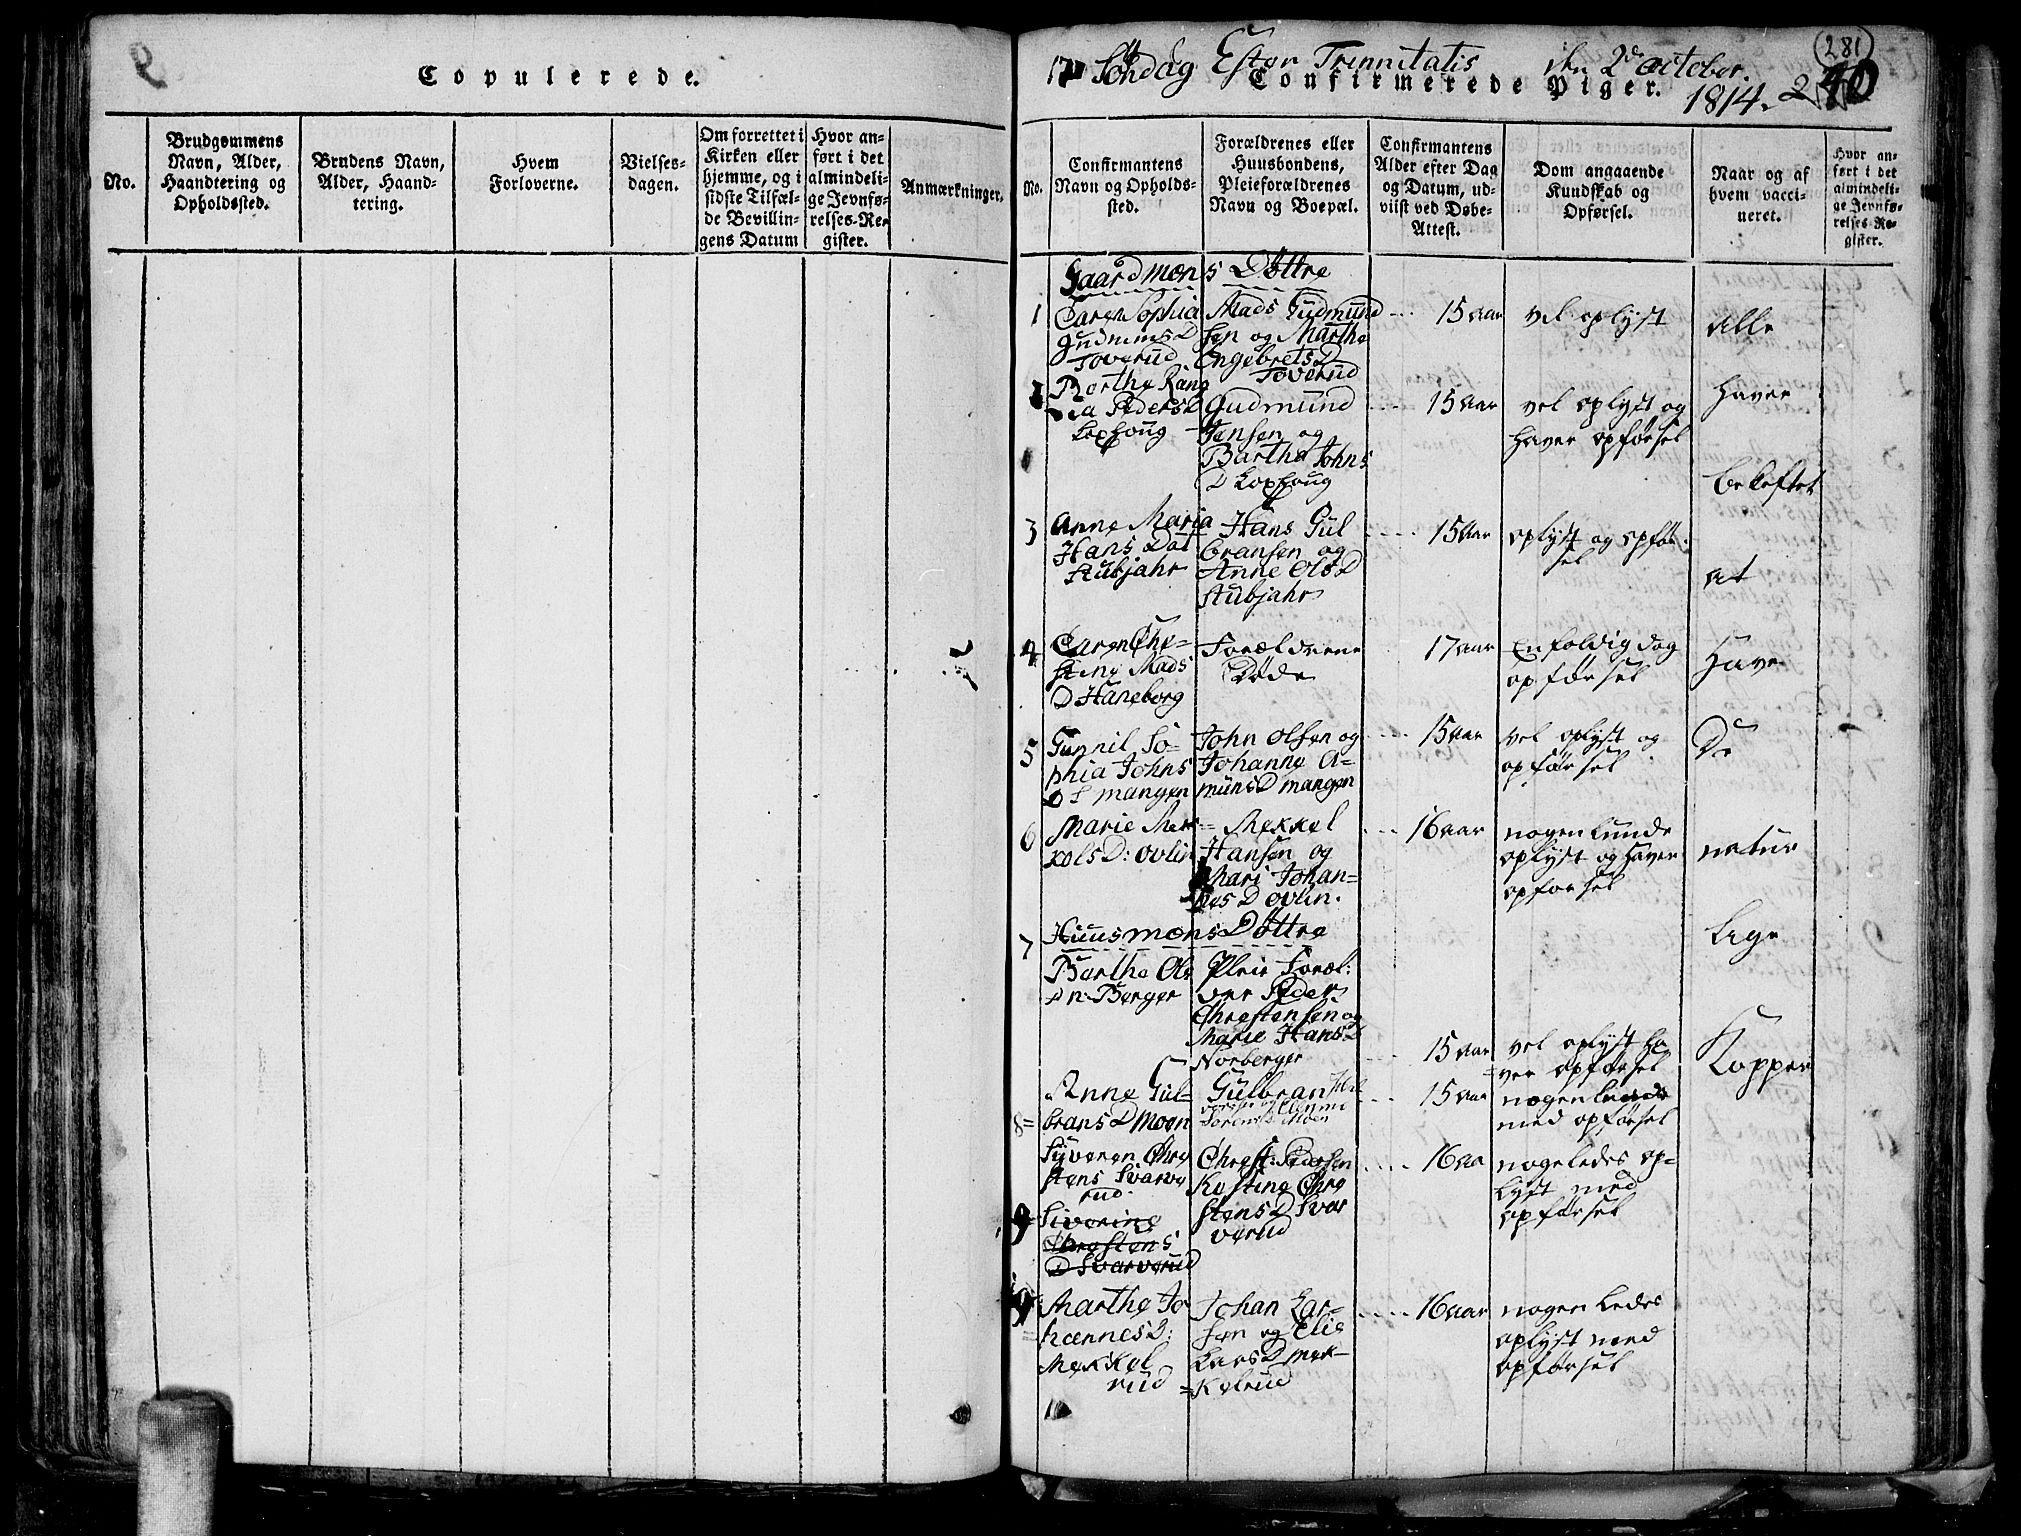 Copulerede.
No.
Brudgommens
Navn, Alder,
Haandtering og
Opholdssted.
Brudens Navn,
Alder, Haand-
tering.
Hvem
Forloverne.
Vielses-
dagen.
Om forrettet i
Kirken eller
hjemme, og i
sidste Tilfæl-
de Bevillin-
gens Datum
Hvor an-
ført i det
almindeli-
ge Jevnfø-
relses-Re-
gister.
Anmærkninger.
281
17 Søndag Efter Trinnitatis den 2de october.
Confirmerede Piger. 1814. 240
No.
Confirmantens
Navn og Opholds-
sted.
Forældrenes eller
Huusbondens,
Pleieforældrenes
Navn og Boepæl.
Confirmantens
Alder efter Dag
og Datum, ud-
viist ved Døbe-
Attest.
Dom angaaende
Kundskab og
Opførsel.
Naar og af
hvem vacci-
neret.
Hvor an-
ført i det
almindeli-
ge Jevnfø-
relses-Re-
gister.
Gaardmæns Døttre
1
Caren Sophia
Gudmuns D
Toverud
Mads Gudmund
sen og Marthe
Engebrets D
Toverud
15 aar
vel oplyst
Barthe Rang
nia Peders D
Gudmund
Jensen og
Barthe Johns
15 aar
vel oplyst og
haver opførsel
3
Anne Maria
Hans Dat
Stubjahr
Hans Gul
bransen og
Anne Ols D
Stubjahr
15 aar
oplyst og opfør
sel
4
Caren Chr-
stine Mads
D Haneborg
Forældrene
Døde
17 aar
Enfoldig dog
opførsel
5
Gunnil So-
phia Johns
D mangen
John Olsen og
Johanne A-
muns D mangen
15 aar
vel oplyst og
opførsel
6
Marie Mek-
kels D: Ovlin
Mekkel
Hansen og
Mari Johan-
nes D Ovlin.
16 aar
nogenlunde
oplyst og haver
opførsel
Huusmæns Døttre
7
Barthe Ols
Dn: Berger
Pleie Foræl:
drer Peder
Chrestensen og
Marie Hans D
Norberger
15 aar
vel oplyst ha
ver opførsel
8
Anne Gul-
brans D Moen
Gulbran
15 aar
nogenlunde
med opførsel
Syveren Chre
stens Svarve
rud.
Chrest: Pedersen
Kirstine Chre
stens D Svar
verud
16 aa
nogeledes op-
lyst med
opførsel
9
Siverine
Chrestens
D Svarverud
9
Marthe Jo
hannes D:
Mekkel
rud
Johan Lar-
sen og Elie
Lars D Mek-
kelrud
16 aar
nogenledes
oplyst med
opførsel
Alle
haver
bekeftet
at
have
De
natur
lige
Kopper